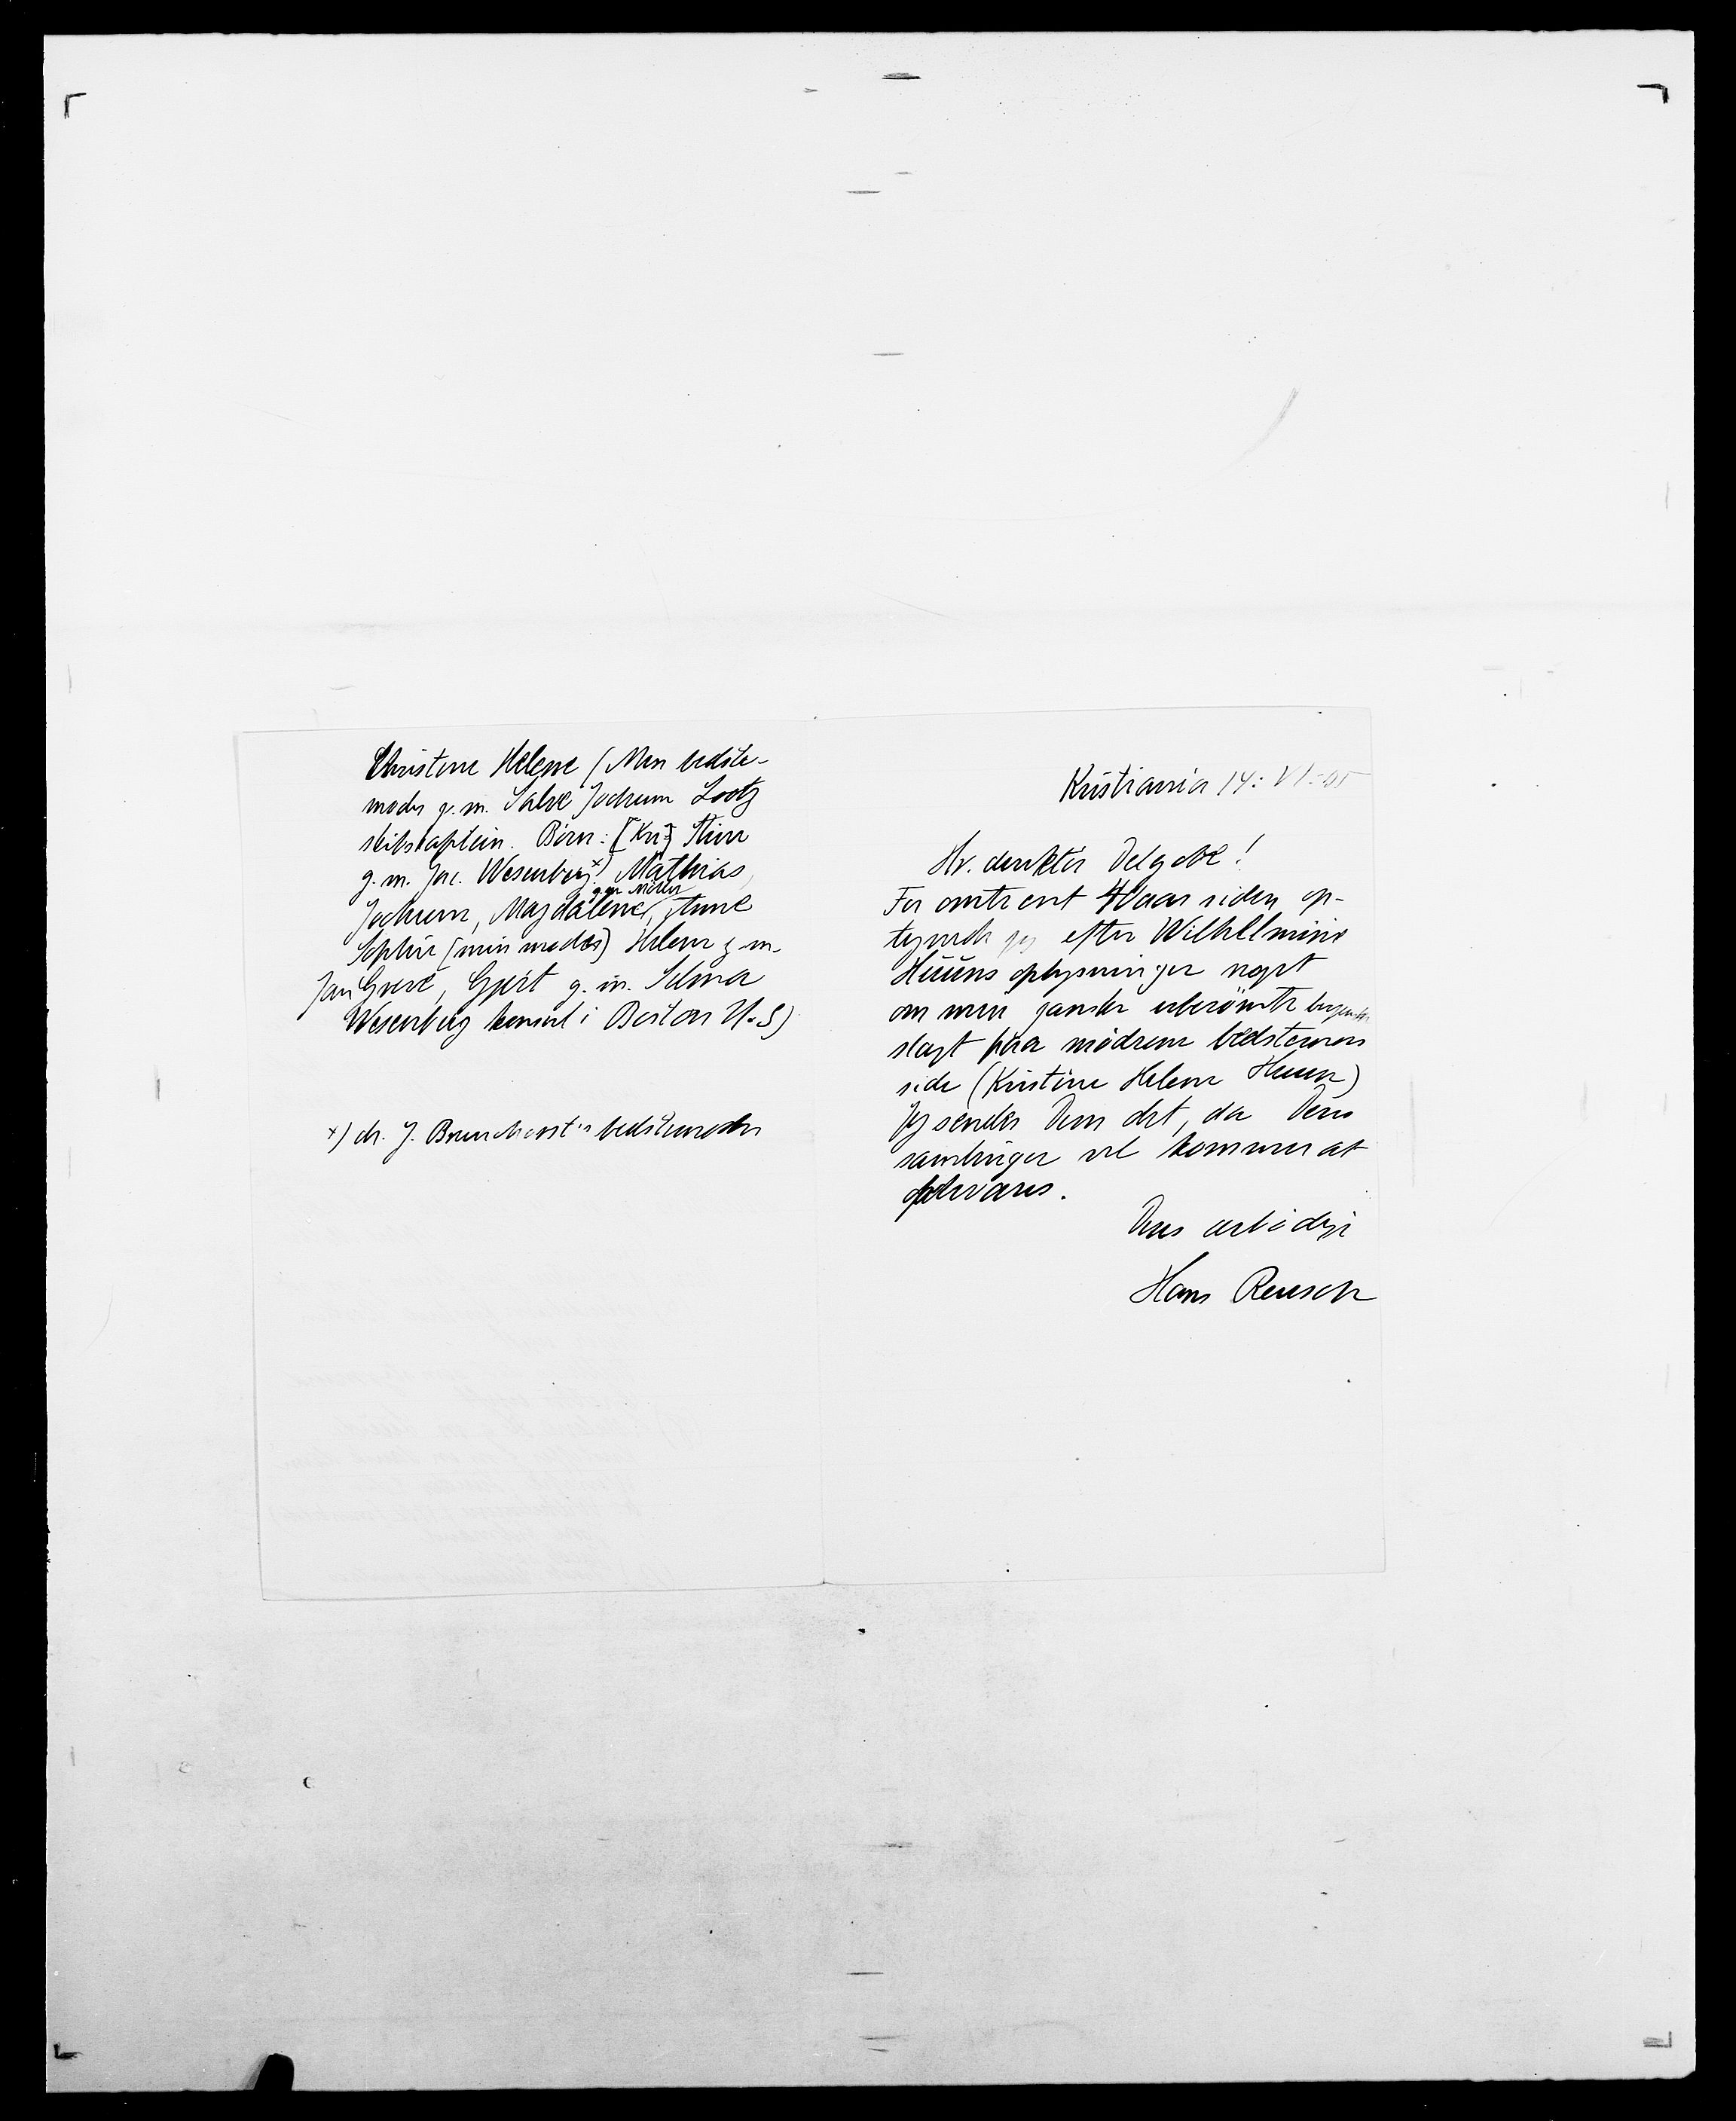 Christine Helene (Min bedste-
moder g. m. Salve Jochum Lootz
skibskaptein. Börn: [Kri] Stine
g. m. Jac. Wesenberg x) Mathias,
Jochum, Magdalene, gm Möller Anne
Sophie (min moder) Helene g m.
Jan Greve, Gjert g. m. Selma
Wesenberg konsul i Boston U.S)
x) dr. J. Brunchorst's bedstemoder
Kristiania 14: VI-05
Hr. direktör Delgobe!
For omtrent 40 aar siden op-
tegnede jeg efter Wilhelmine
Hüüns oplysninger noget
om min ganske uberömte bergenske
slægt paa mödrene bedstemors
side (Kristine Helene Huun)
Jeg sender Dem det, da Deres
samlinger vel kommer at
opbevares.
Deres ærbödige
Hans Reusch